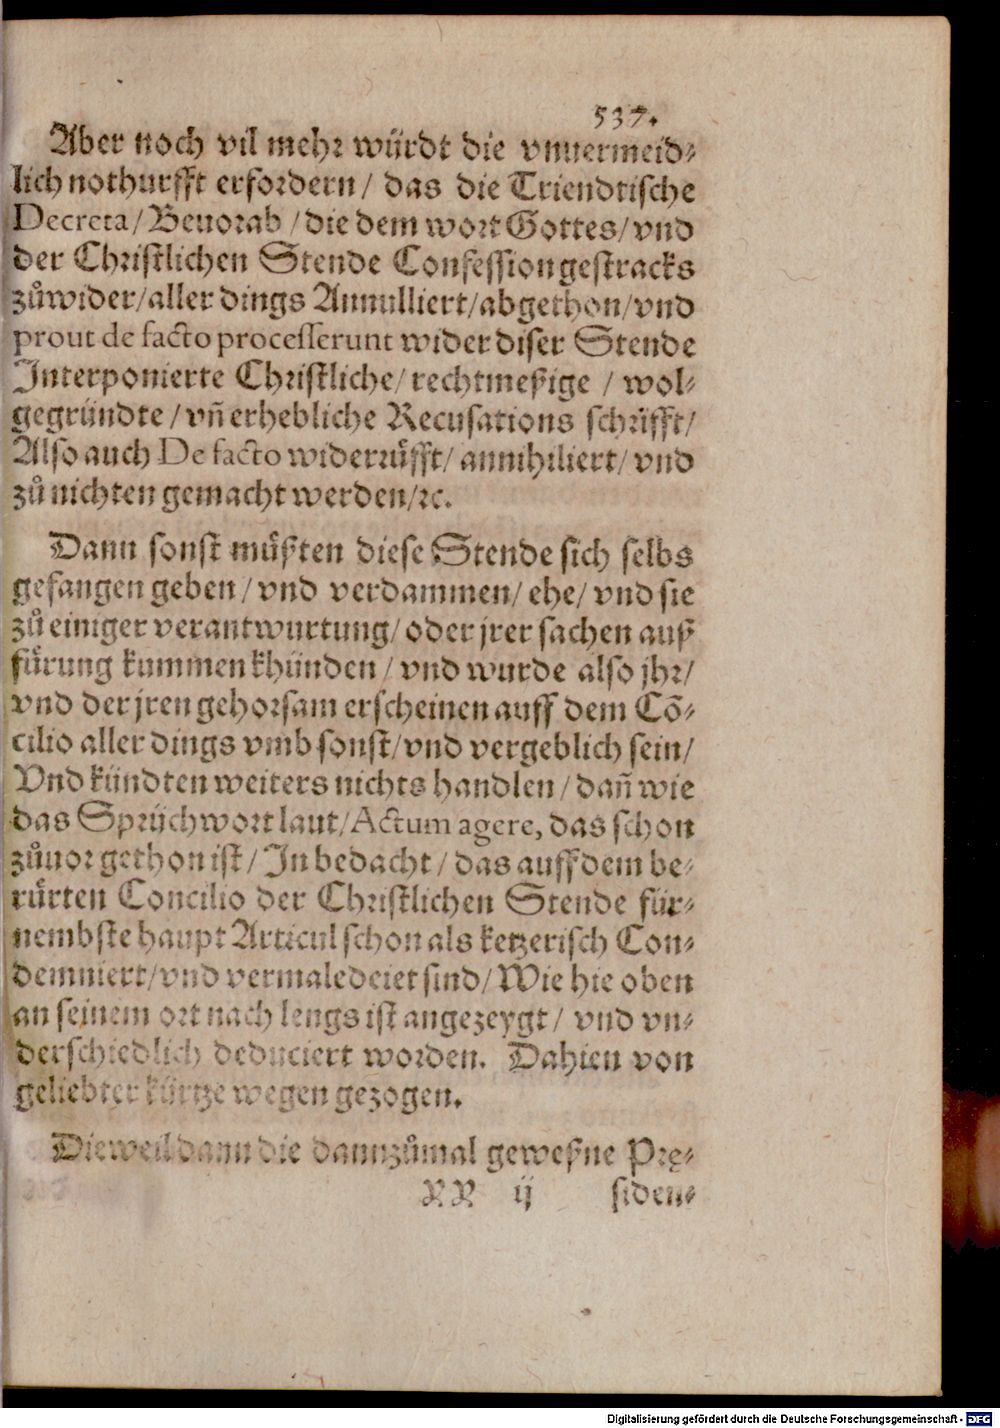 537.
Aber noch vil mehr würdt die vnuermeid⸗
lich nothurfft erfordern/ das die Triendtische
Decreta/ Beuorab/ die dem wort Gottes/ vnd
der Christlichen Stende Confession gestracks
zůwider/ aller dings Annulliert/ abgethon/ vnd
prout de facto processerunt wider diser Stende
Interponierte Christliche/ rechtmeßige / wol⸗
gegründte/ vñ erhebliche Recusations schrifft/
Also auch De facto widerrůfft/ annihiliert/ vnd
zů nichten gemacht werden/ ꝛc.
Dann sonst můßten diese Stende sich selbs
gefangen geben/ vnd verdammen/ ehe/ vnd sie
zů einiger verantwurtung/ oder jrer sachen auß
fůrung kummen khünden/ vnd wurde also jhr/
vnd der jren gehorsam erscheinen auff dem Cõ⸗
cilio aller dings vmb sonst/ vnd vergeblich sein/
Vnd kündten weiters nichts handlen/ dañ wie
das Sprüchwort laut/ Actum agere, das schon
zůuor gethon ist/ In bedacht/ das auff dem be⸗
růrten Concilio der Christlichen Stende für⸗
nembste haupt Articul schon als ketzerisch Con⸗
demniert/ vnd vermaledeiet sind/ Wie hie oben
an seinem ort nach lengs ist angezeygt/ vnd vn⸗
derschiedlich deduciert worden. Dahien von
geliebter kürtze wegen gezogen.
Dieweil dann die dannzůmal geweßne Pre⸗
XX ij siden⸗
Digitalisierung gefördert durch die Deutsche Forschungsgemeinschaft - DFG